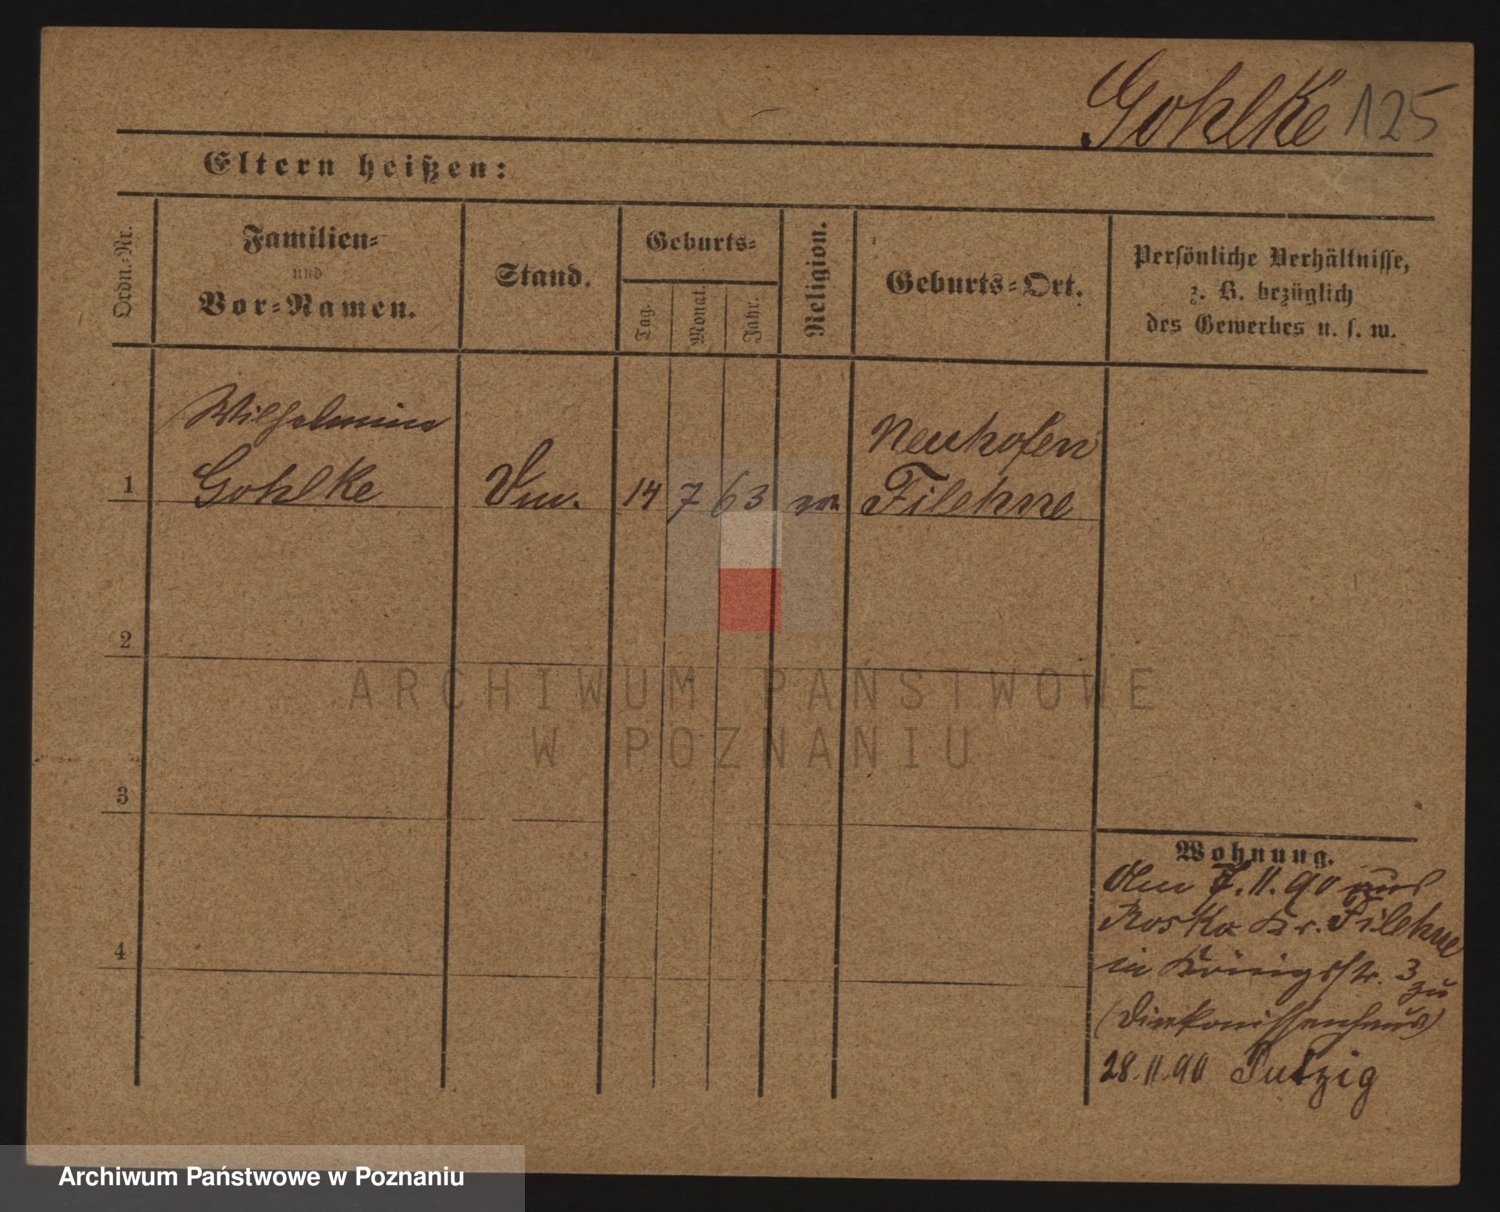 Gohlke 125
Eltern heißen:
Ordn.-Nr.
Familien-
und
Vor-Namen.
Stand.
Geburts-
Tag.
Monat.
Jahr.
Religion.
Geburts-Ort.
Persönliche Verhältnisse,
z. B. bezüglich
des Gewerbes u. s. w.
Wilhelmine
Neuhofen
1 Gohlke 14 7 63 Filehne
2
ARCHIWUM PAŃSTWOWE
W POZNANIU
3
Wohnung.
7.11.90 aus
Rosko Kr. Filehne
in Königsstr. 3 zu
4
(Diakonissenhaus)
28.11.90 Putzig
Archiwum Państwowe w Poznaniu